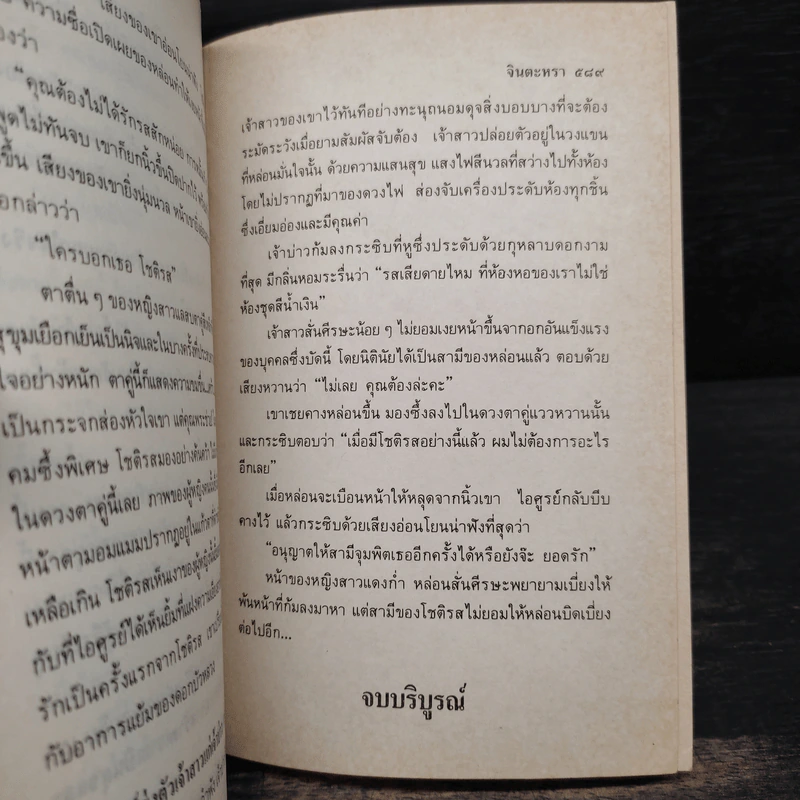 เสียงของเขาอ่อนโยน
ความซื่อเปิดเผยของหล่อนทำให้
องว่า
“คุณต้องไม่ได้รักรสสักหน่อย
พูดไม่ทันจบ เขาก็ยกนิ้วขึ้นปิดปาก
ขึ้น เสียงของเขายิ่งนุ่มนวล
อกล่าวว่า
“ใครบอกเธอ โชติรส”
ตาตื่น ๆ ของหญิงสาวแลสบตาคู่
สุขุมเยือกเย็นเป็นนิจและในบางครั้งที่
ใจอย่างหนัก ตาคู่นี้ก็แสดงความ
เป็นกระจกส่องหัวใจเขา แต่คุณพระช่วย
คมซึ้งพิเศษ โชติรสมองอย่างค้นคว้า
ในดวงตาคู่นี้เลย ภาพของผู้หญิง
หน้าตามอมแมมปรากฏอยู่ใน
เหลือเกิน โชติรสเห็นเงาของผู้หญิง
กับที่ไอศูรย์ได้เห็นยิ้มที่แฝงความ
รักเป็นครั้งแรกจากโชติรส
กับอาการแย้มของดอกบัวหลวง
จินตะหรา ๕๘๙
เจ้าสาวของเขาไว้ทันทีอย่างทะนุถนอมดุจสิ่งบอบบางที่จะต้อง
ระมัดระวังเมื่อยามสัมผัสจับต้อง เจ้าสาวปล่อยตัวอยู่ในวงแขน
ที่หล่อนมั่นใจนั้น ด้วยความแสนสุข แสงไฟสีนวลที่สว่างไปทั้งห้อง
โดยไม่ปรากฏที่มาของดวงไฟ ส่องจับเครื่องประดับห้องทุกชิ้น
ซึ่งเอี่ยมอ่องและมีคุณค่า
เจ้าบ่าวก้มลงกระซิบที่หูซึ่งประดับด้วยกุหลาบดอกงาม
ที่สุด มีกลิ่นหอมระรื่นว่า “รสเสียดายไหม ที่ห้องหอของเราไม่ใช่
ห้องชุดสีน้ำเงิน”
เจ้าสาวสั่นศีรษะน้อย ๆ ไม่ยอมเงยหน้าขึ้นจากอกอันแข็งแรง
ของบุคคลซึ่งบัดนี้ โดยนิตินัยได้เป็นสามีของหล่อนแล้ว ตอบด้วย
เสียงหวานว่า “ไม่เลย คุณต้องล่ะคะ”
เขาเชยคางหล่อนขึ้น มองซึ้งลงไปในดวงตาคู่แววหวานนั้น
และกระซิบตอบว่า “เมื่อมีโชติรสอย่างนี้แล้ว ผมไม่ต้องการอะไร
อีกเลย”
เมื่อหล่อนจะเบือนหน้าให้หลุดจากนิ้วเขา ไอศูรย์กลับบีบ
คางไว้ แล้วกระซิบด้วยเสียงอ่อนโยนน่าฟังที่สุดว่า
“อนุญาตให้สามีจุมพิตเธออีกครั้งได้หรือยังจ๊ะ ยอดรัก”
หน้าของหญิงสาวแดงก่ำ หล่อนสั่นศีรษะพยายามเบี่ยงให้
พ้นหน้าที่ก้มลงมาหา แต่สามีของโชติรสไม่ยอมให้หล่อนบิดเบี่ยง
ต่อไปอีก...
จบบริบูรณ์